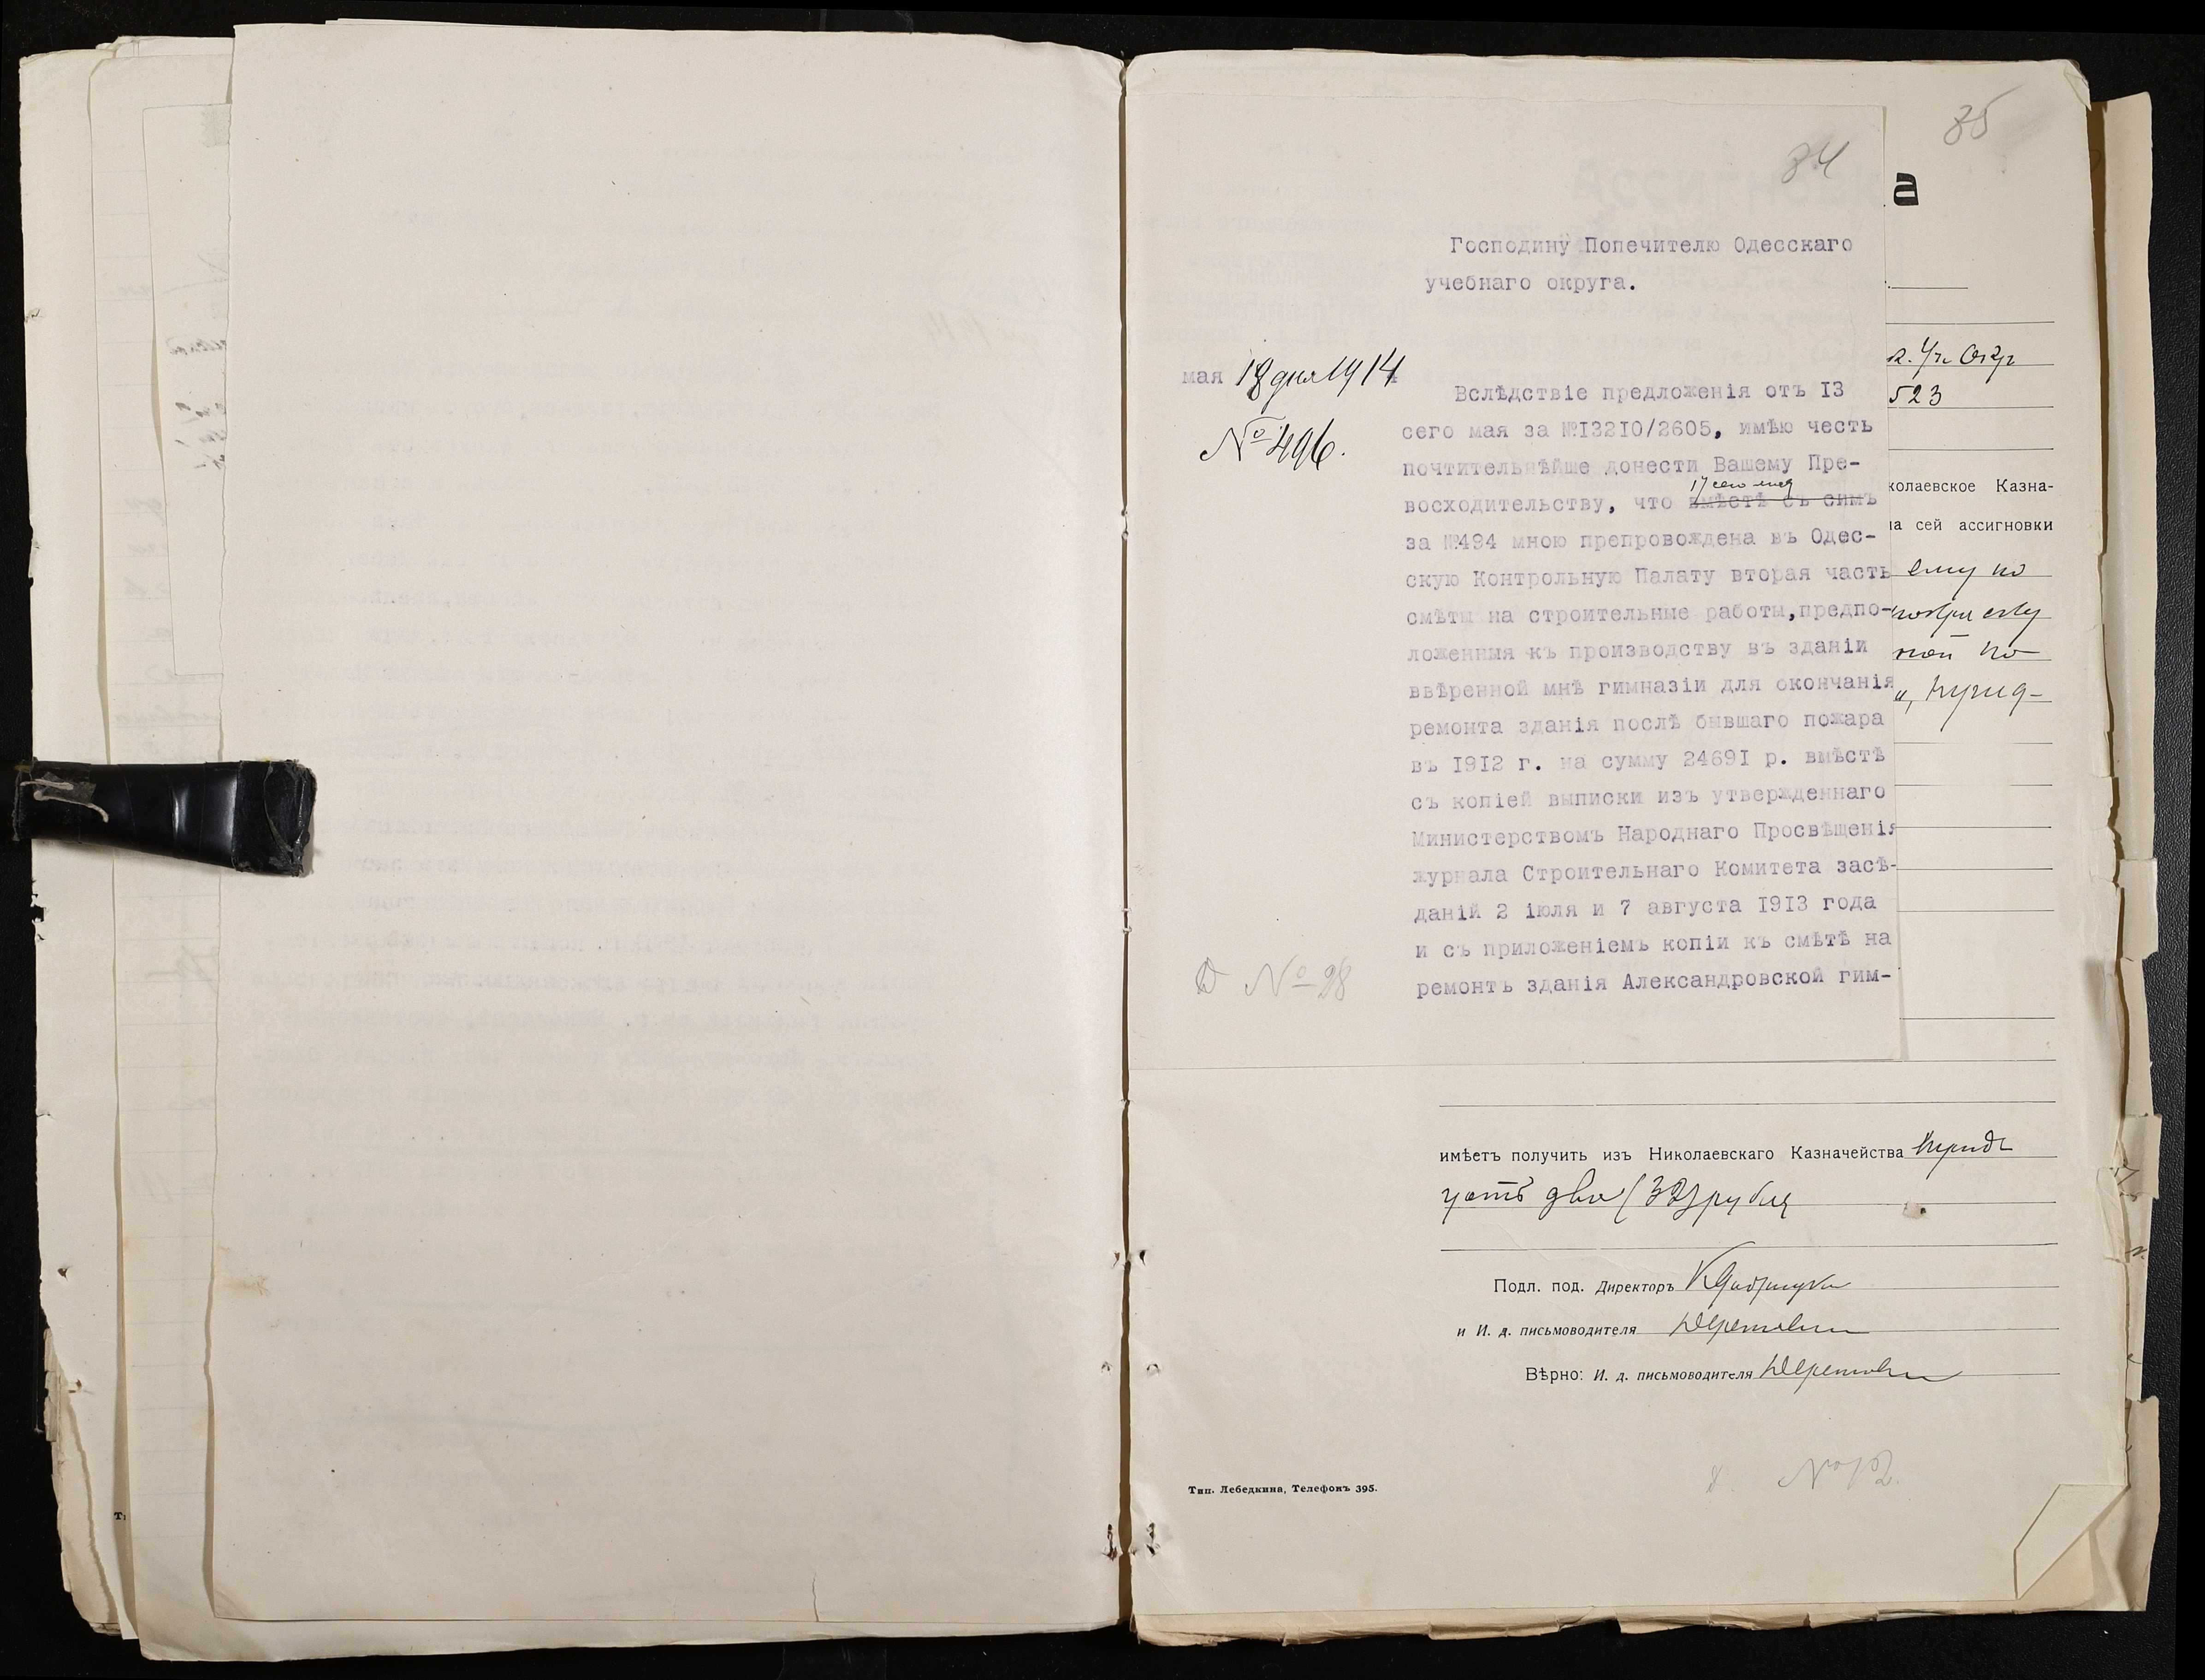 84
Господину Попечителю Одесскаго
учебнаго округа.
мая 18 дня 1914
№ 496.
Вслѣдствіе предложенія отъ I3
сего мая за №I32I0/2605, имѣю честь
почтительнѣйше донести Вашему Пре-
17 сего мая
восходительству, что вмѣстѣ съ симъ
за №494 мною препровождена въ Одес-
скую Контрольную Палату вторая часть
смѣты на строительные работы,предпо-
ложенныя къ производству въ зданіи
ввѣренной мнѣ гимназіи для окончанія
ремонта зданія послѣ бывшаго пожара
въ I9I2 г. на сумму 2469I р. вмѣстѣ
съ копіей выписки изъ утвержденнаго
Министерствомъ Народнаго Просвѣщенія
журнала Строительнаго Комитета засѣ-
даній 2 іюля и 7 августа I9I3 года
и съ приложеніемъ копіи къ смѣтѣ на
ремонтъ зданія Александровской гим-
№ 98
85
а
Уч. Окр
523
колаевское Казна-
на сей ассигновки
ему по
ной по
имѣетъ получить изъ Николаевскаго Казначейства тридъ
цать два (32) рубля
Подл. под. Директоръ
и И. д. письмоводителя
Вѣрно: И. д. письмоводителя
№ 12.
Тип. Лебедкина, Телефонъ 395.